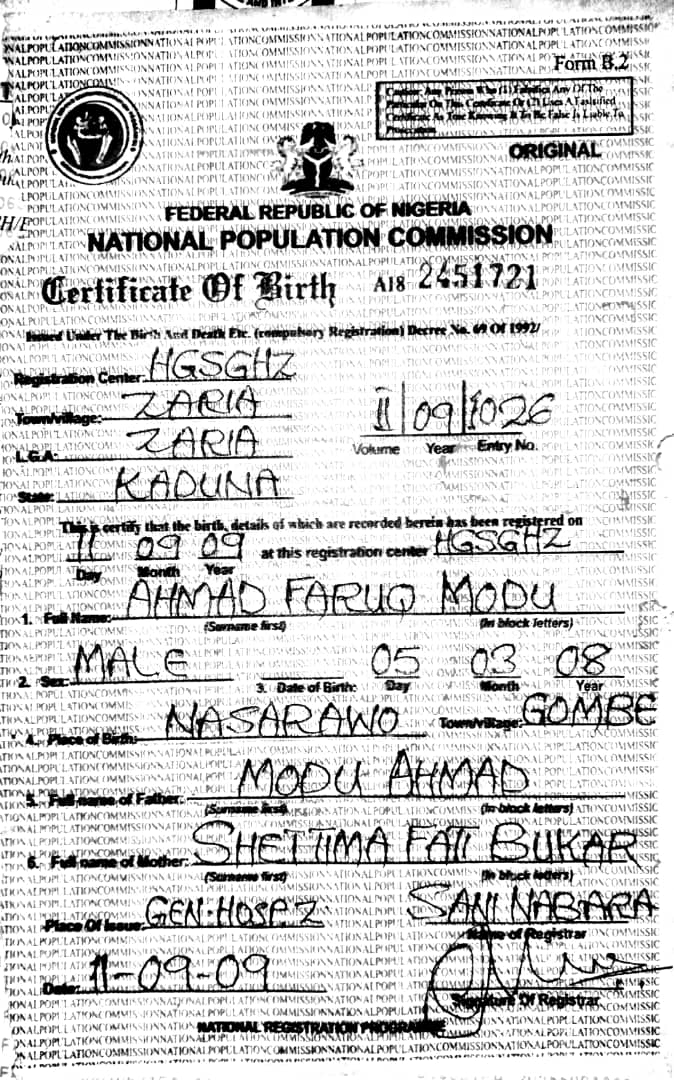 Form B.2
Caution: Any Person Who (1) Falsifies Any Of The
Particular On This Certificate Or (2) Uses A Falsified
Certificate As True Knowing It To Be False Is Liable To
Prosecution
ORIGINAL
FEDERAL REPUBLIC OF NIGERIA
NATIONAL POPULATION COMMISSION
Certificate Of Birth A18 2451721
Issued Under The Birth And Death Etc. (compulsory Registration) Decree No. 69 Of 1992/
Registration Center: HGSGHZ
Town/village: ZARIA
II 09 1026
L.G.A: ZARIA
Volume Year Entry No.
State: KADUNA
This is certify that the birth, details of which are recorded herein has been registered on
11 09 09 at this registration center HGSGHZ
Day Month Year
1. Full Name: AHMAD FARUQ MODU
(Surname first) (in block letters)
2. Sex: MALE 3. Date of Birth: 05 03 08
Day Month Year
4. Place of Birth: NASARAWO Town/Village: GOMBE
5. Full name of Father: MODU AHMAD
(Surname first) (in block letters)
6. Full name of Mother: SHETTIMA FATI BUKAR
(Surname first) (in block letters)
Place Of Issue: GEN. HOSP. Z SANI NABARA
Name of Registrar
Date: 11-09-09
Signature Of Registrar
NATIONAL REGISTRATION PROGRAMME